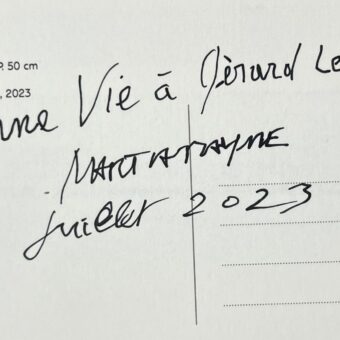 P. 50 cm
, 2023
nne Vie à Gérard Le
juillet 2023